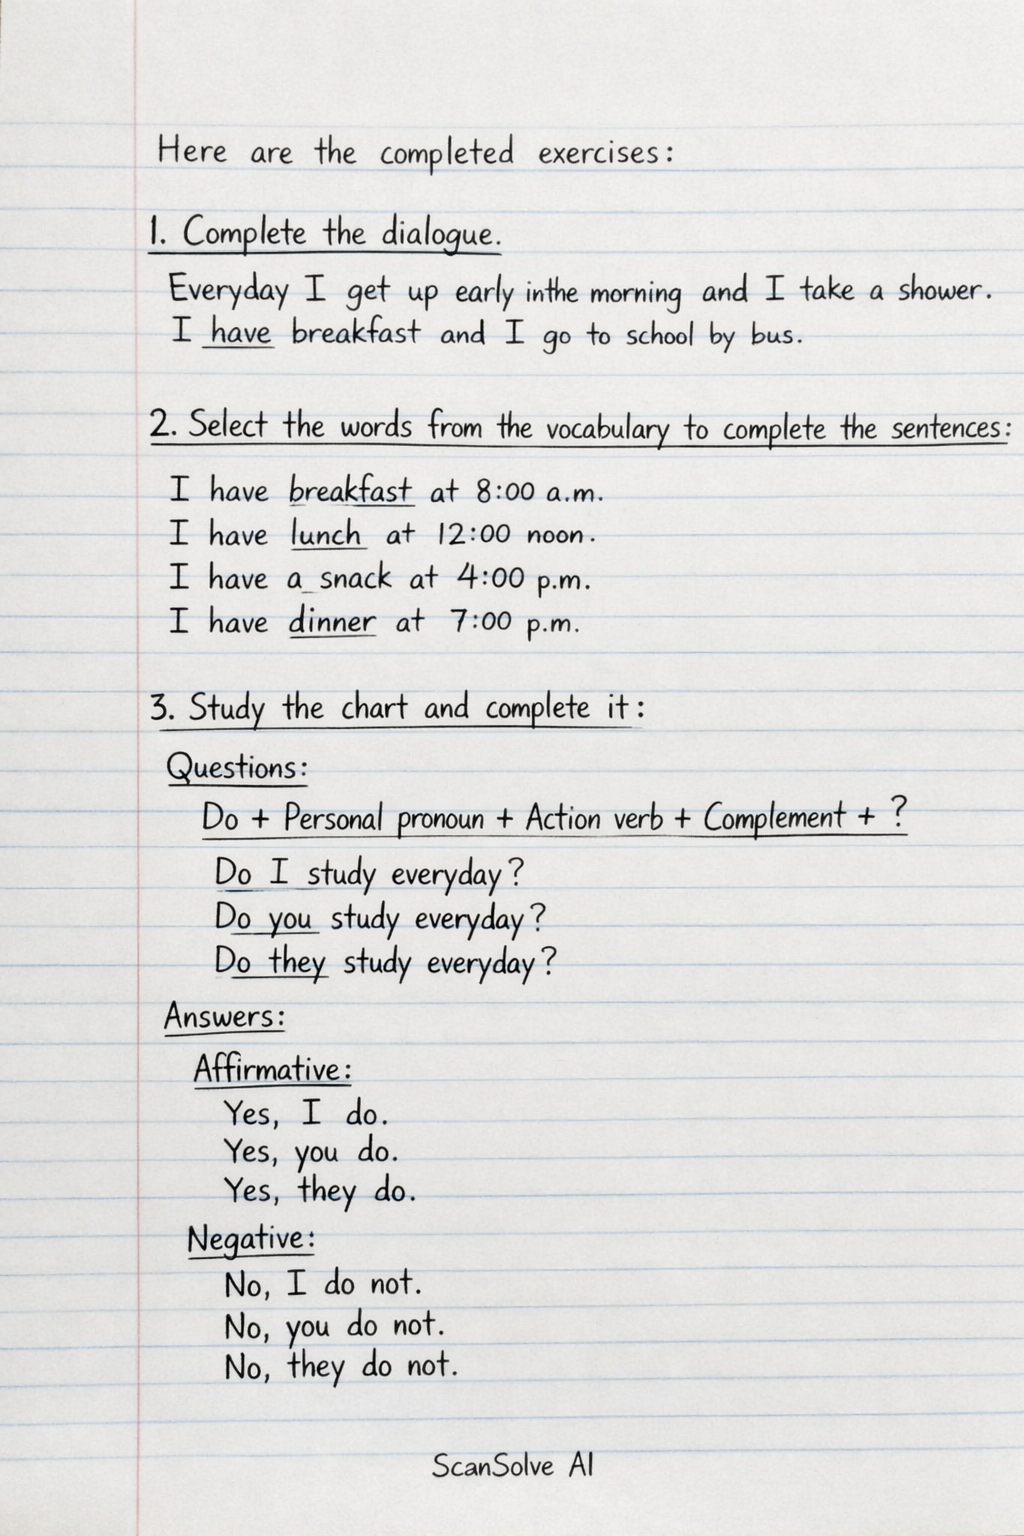 Here are the completed exercises:
1. Complete the dialogue.
Everyday I get up early inthe morning and I take a shower.
I have breakfast and I go to school by bus.
2. Select the words from the vocabulary to complete the sentences:
I have breakfast at 8:00 a.m.
I have lunch at 12:00 noon.
I have a snack at 4:00 p.m.
I have dinner at 7:00 p.m.
3. Study the chart and complete it:
Questions:
Do + Personal pronoun + Action verb + Complement + ?
Do I study everyday?
Do you study everyday?
Do they study everyday?
Answers:
Affirmative:
Yes, I do.
Yes, you do.
Yes, they do.
Negative:
No, I do not.
No, you do not.
No, they do not.
ScanSolve AI